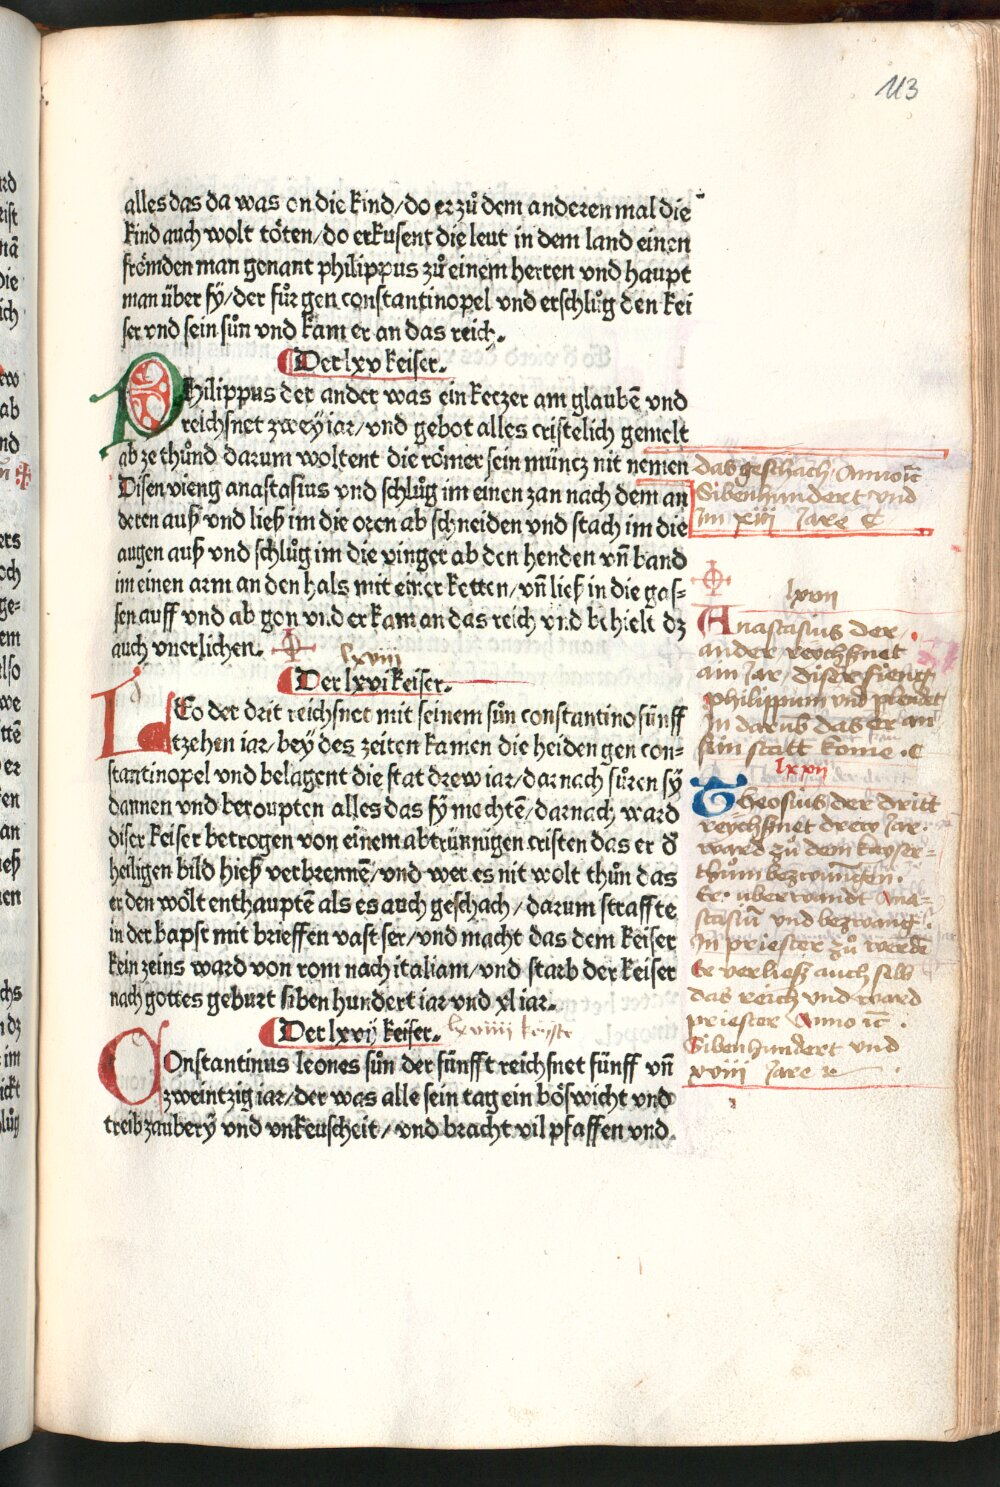 113
alles das da was on die kind/do er zů dem anderen mal die
kind auch wolt tôten/do erkusent die leut in dem land einen
frômden man genant philippus zů einem herren vnd haupt
man über sÿ/der fůr gen constantinopel vnd erschlůg den kei
ser vnd sein sůn vnd kam er an das reich.
Der lxv keiser.
PHilippus der ander was ein keczer am glaubē vnd
reichsnet zweÿ iar/vnd gebot alles cristelich gemelt
ab ze thůnd darum woltent die rômer sein müncz nit nemen
Disen vieng anastasius vnd schlůg im einen zan nach dem an
deren auß vnd ließ im die oren ab schneiden vnd stach im die
augen auß vnd schlůg im die vinger ab den henden vñ band
im einen arm an den hals mit einer ketten/vñ ließ in die gas-
sen auff vnd ab gon vnd er kam an das reich vnd behielt dz
auch vnerlichen.
lxviii
Der lxvi keiser.
LEo der drit reichsnet mit seinem sůn constantino fünff
tzehen iar/beÿ des zeiten kamen die heiden gen con-
stantinopel vnd belagent die stat drew iar/darnach fůren sÿ
dannen vnd beroupten alles das sÿ mochtē/darnach ward
diser keiser betrogen von einem abtrünnigen cristen das er d
heiligen bild hieß verbrennē/vnd wer es nit wolt thůn das
er den wôlt enthauptē als es auch geschach/darum straffte
in der bapst mit brieffen vast ser/vnd macht das dem keiser
kein zeins ward von rom nach italiam/vnd starb der keiser
nach gottes geburt siben hundert iar vnd xli iar.
Der lxvij keiser. lxviiii
COnstantinus leones sůn der fünfft reichsnet fünff vñ
zweintzig iar/der was alle sein tag ein bôswicht vnd
treib zauberÿ vnd vnkeuscheit/vnd bracht vil pfaffen vnd
das geschach/Anno
Sibenhundert vnd
Im xiii Jare
Anastasius der
ander reychsnet
ain Jar/diser fieng
philippum vnd plendet
In darub das er an
sein statt kome
Theosius der dritt
reychsnet drew Jar.
ward zů dem kayser-
thům bezwungen.
Er vberwandt Ana-
stasiū vnd bezwang
In priester zů werdē
Er verließ auch selb
das reich vnd ward
priester Anno
Sibenhundert vnd
xviii Jare